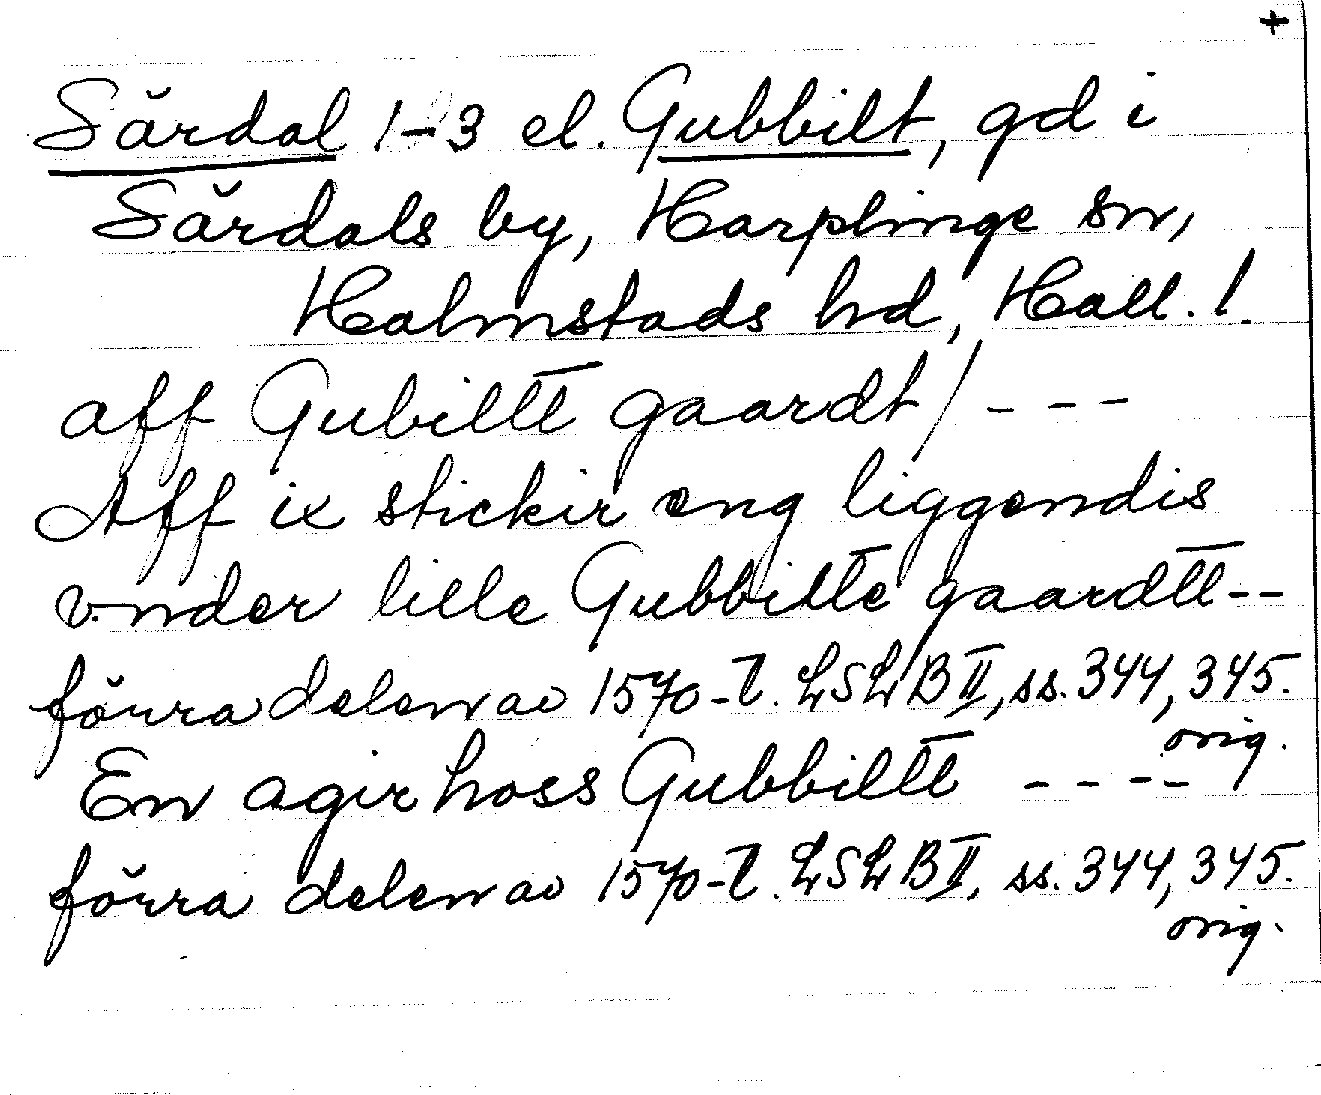 +
Särdal 1-3 el. Gubbilt, gd i
Särdals by, Harplinge sn,
Halmstads hd, Hall. !.
aff Gubiltt gaardt / - - -
Aff ix stickir eng liggendis
vnder lille Gubbilte gaardtt--
förra delen av 1570-t. LSLB II, ss. 344, 345.
orig.
En agir hoss Gubbiltt - - - -
förra delen av 1570-t. LSLB II, ss. 344, 345.
orig.